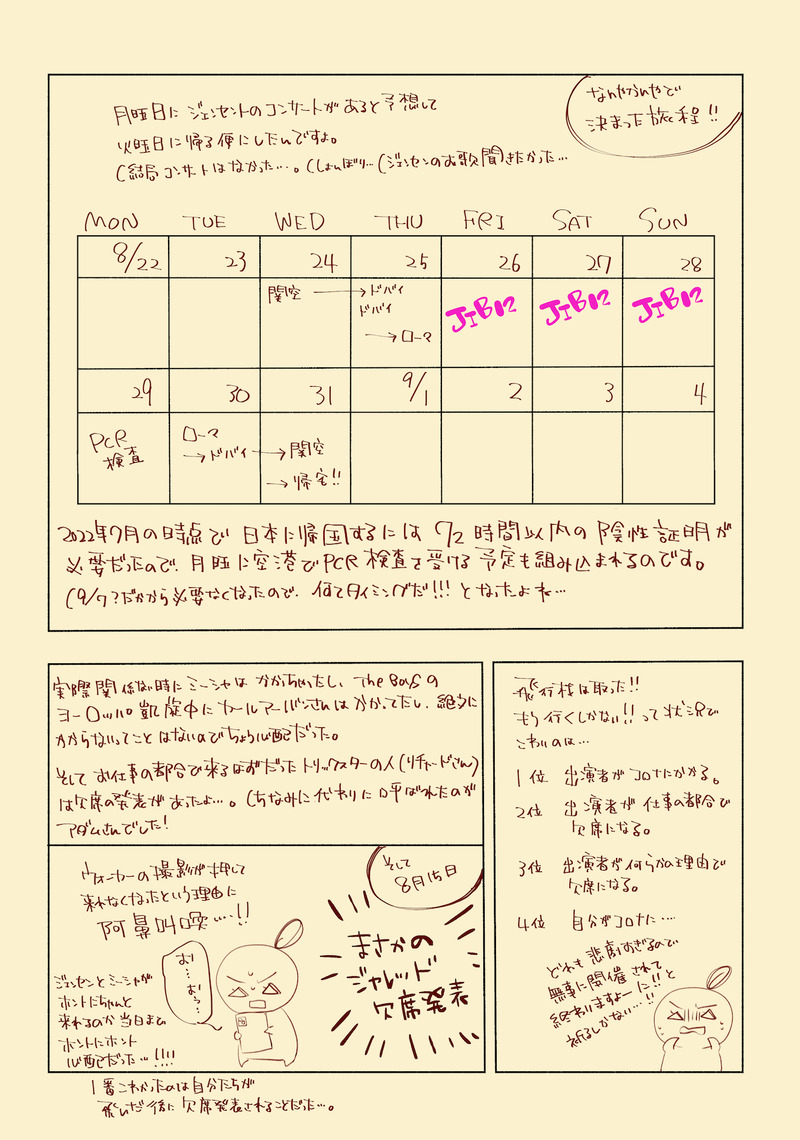 なんやかんやで
決まった旅程!!
月曜日に ジェンセントのコンサートがあると予想して
火曜日に帰る便にしたんですよ。
(結局コンサートはなかった…。(しょんぼり…(ジェンセンのお歌聞きたかった…
MON TUE WED THU FRI SAT SUN
8/22 23 24 25 26 27 28
関空 → ドバイ
ドバイ
→ ローマ
JIB12 JIB12 JIB12
29 30 31 9/1 2 3 4
PCR
検査
ローマ
→ドバイ → 関空
→ 帰宅!!
2022年7月の時点で 日本に帰国するには 72時間以内の 陰性証明が
必要だったので、月曜に空港でPCR検査を受ける 予定も組み込まれるのです。
(9/7?だかから必要なくなったので、何てタイミングだ!!! となったよね…
実際関係ない時にミーシャは かかっちゃったし、The Boysの
ヨーロッパ凱旋中にカールアーバンさんはかかってたし、絶対に
かからないってことはないのでちょう心配だった。
そして お仕事の都合で来るはずだったトリックスターの人(リチャードさん)
は欠席の発表があったよ…。(ちなみに代わりに呼ばれたのが
アダムさんでした!
飛行機は取った!!
もう行くしかない!!って状況で
こわいのは…
1位 出演者がコロナにかかる。
2位 出演者が 仕事の都合で
欠席になる。
3位 出演者が何らかの理由で
欠席になる。
4位 自分がコロナに…
どれも悲劇すぎるので
無事に開催されて
終わりますよーに!!と
祈るしかない…!!
ウォーカーの撮影が押して
来れなくなったという理由に
阿鼻叫喚…!!
そして
8月15日
まさかの
ジャレッド
欠席発表
お…
おぅ…
ジェンセンとミーシャが
ホントにちゃんと
来れるのか当日まで
ホントにホント
心配だった…!!!!
1番こわかったのは自分たちが
飛んだ後に欠席発表されることだった…。